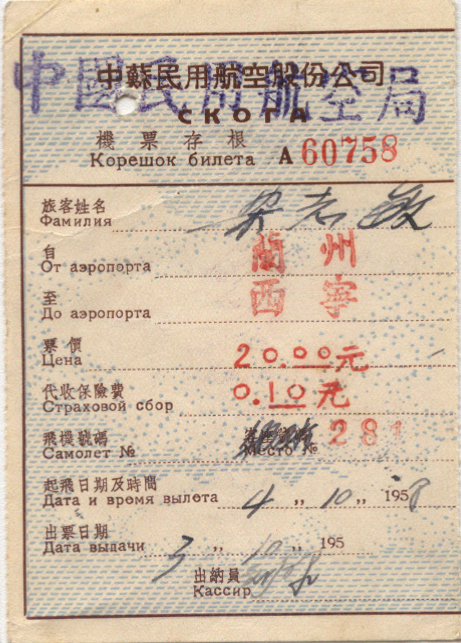 中蘇民用航空股份公司
中國民用航空局
СКОГА
機票存根
Корешок билета А 60758
旅客姓名
Фамилия 梁志敏
自
От аэропорта 蘭州
至
До аэропорта 西寧
票價
Цена 20.00元
代收保險費
Страховой сбор 0.10元
飛機號碼
Самолет № Место № 281
起飛日期及時間
Дата и время вылета 4 „ 10 „ 1958
出票日期
Дата выдачи 3 „ 10 „ 195
出納員
Кассир